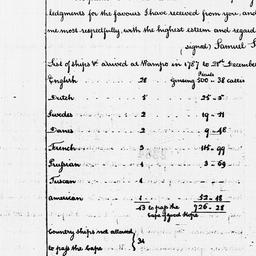 ledgments for the favours I have received from you, and
me most respectfully, with the highest esteem and regard
signed) Samuel S
List of ships &c arrived at Wampo in 1787 to 21st December
Peculs
English 28 Ginseng 500 - 38 catties
Dutch 5 25 - 5
Swedes 2 19 - 11
Danes 2 9 - 48
French 3 115 - 99
Prussian 1 3 - 69
Tuscan 1 - -
american 1 52 - 18
43 to pass the 726 - 28
Cape of good Hope
Country ships not allowed
to pass the Cape } 34